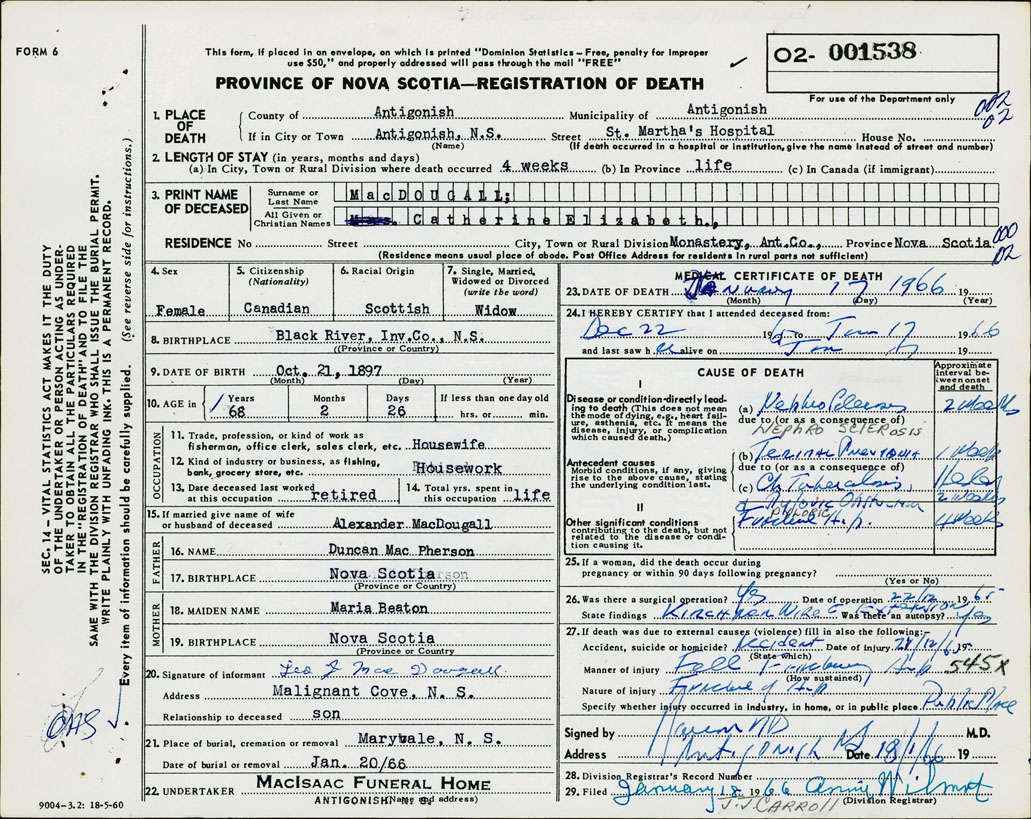 FORM 6
This form, if placed in an envelope, on which is printed "Dominion Statistics – Free, penalty for improper
use $50," and properly addressed will pass through the mail "FREE"
O2- 001538
For use of the Department only
PROVINCE OF NOVA SCOTIA—REGISTRATION OF DEATH
002
02
1. PLACE OF DEATH
County of Antigonish Municipality of Antigonish
If in City or Town Antigonish, N.S. Street St. Martha's Hospital House No.
(Name) (If death occurred in a hospital or institution, give the name instead of street and number)
2. LENGTH OF STAY (in years, months and days)
(a) In City, Town or Rural Division where death occurred 4 weeks (b) In Province life (c) In Canada (if immigrant)
3. PRINT NAME OF DECEASED
Surname or Last Name MacDOUGALL;
All Given or Christian Names Mrs. Catherine Elizabeth.,
RESIDENCE No Street City, Town or Rural Division Monastery, Ant.Co., Province Nova Scotia
000
02
(Residence means usual place of abode. Post Office Address for residents in rural parts not sufficient)
4. Sex Female
5. Citizenship (Nationality) Canadian
6. Racial Origin Scottish
7. Single, Married, Widowed or Divorced (write the word) Widow
8. BIRTHPLACE Black River, Inv.Co., N.S.
(Province or County)
9. DATE OF BIRTH Oct. 21, 1897
(Month) (Day) (Year)
10. AGE in Years 68 Months 2 Days 26 If less than one day old hrs. or min.
OCCUPATION
11. Trade, profession, or kind of work as fishing, officer clerk, sales clerk, etc. Housewife
12. Kind of industry or business, as fishing, bank, grocery store, etc. Housework
13. Date deceased last worked at this occupation retired
14. Total yrs. spent in this occupation life
15. If married give name of wife or husband of deceased Alexander MacDougall
FATHER
16. NAME Duncan Mac Pherson
17. BIRTHPLACE Nova Scotia
(Province or Country)
MOTHER
18. MAIDEN NAME Maria Beaton
19. BIRTHPLACE Nova Scotia
(Province or Country)
20. Signature of informant Leo J Mac Dougall
Address Malignant Cove, N. S.
Relationship to deceased son
21. Place of burial, cremation or removal Maryvale, N. S.
Date of burial or removal Jan. 20/66
22. UNDERTAKER MACISAAC FUNERAL HOME
ANTIGONISH, N. S.
(Name and address)
MEDICAL CERTIFICATE OF DEATH
23. DATE OF DEATH January 17 1966 19
(Month) (Day) (Year)
24. I HEREBY CERTIFY that I attended deceased from:
Dec 22 1965 to Jan 17 1966
and last saw her alive on Jan 17 19
CAUSE OF DEATH
Approximate interval between onset and death
I
Disease or condition directly leading to death (This does not mean the mode of dying, e.g., heart failure, asthenia, etc. It means the disease, injury, or complication which caused death.)
(a) 2 weeks
due to (or as a consequence of)
NEPHRO SCLEROSIS
Antecedent causes
Morbid conditions, if any, giving rise to the above cause, stating the underlying condition last.
(b) Terminal Pneumonia 1 week
due to (or as a consequence of)
(c) Ch Tuberculosis
2 weeks
PHYLORIC
II
Other significant conditions contributing to the death, but not related to the disease or condition causing it.
Fracture Hip. 4 weeks
25. If a woman, did the death occur during pregnancy or within 90 days following pregnancy?
(Yes or No)
26. Was there a surgical operation? Yes Date of operation 22/12 1965
State findings KIRCHNER WIRE EXTENSION Was there an autopsy? Yes
27. If death was due to external causes (violence) fill in also the following:-
Accident, suicide or homicide? Accident Date of injury 21/12/65
(State which)
Manner of injury Fall Hip
(How sustained)
545X
Nature of injury Fracture of Hip
Specify whether injury occurred in industry, in home, or in public place Public Place
Signed by M.D.
Address Antigonish NS Date 18/1/66 19
28. Division Registrar's Record Number
29. Filed January 18 1966 Annie Wilmot
J.J. CARROLL (Division Registrar)
SEC. 14 – VITAL STATISTICS ACT MAKES IT THE DUTY
OF THE UNDERTAKER OR PERSON ACTING AS UNDER-
TAKER TO OBTAIN ALL THE PARTICULARS REQUIRED
IN THE "REGISTRATION OF DEATH" AND TO FILE THE
SAME WITH THE DIVISION REGISTRAR WHO SHALL ISSUE THE BURIAL PERMIT.
WRITE PLAINLY WITH UNFADING INK. THIS IS A PERMANENT RECORD.
Every item of information should be carefully supplied. (See reverse side for instructions.)
9004-3.2: 18-5-60